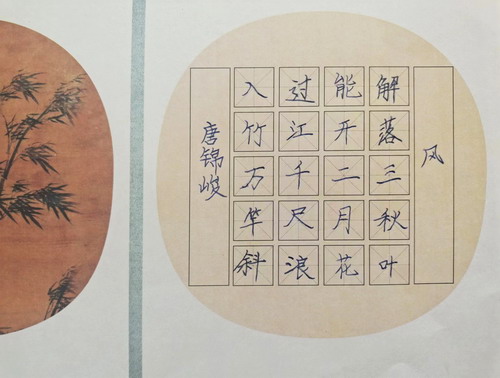 风
解落三秋叶
能开二月花
过江千尺浪
入竹万竿斜
唐锦峻